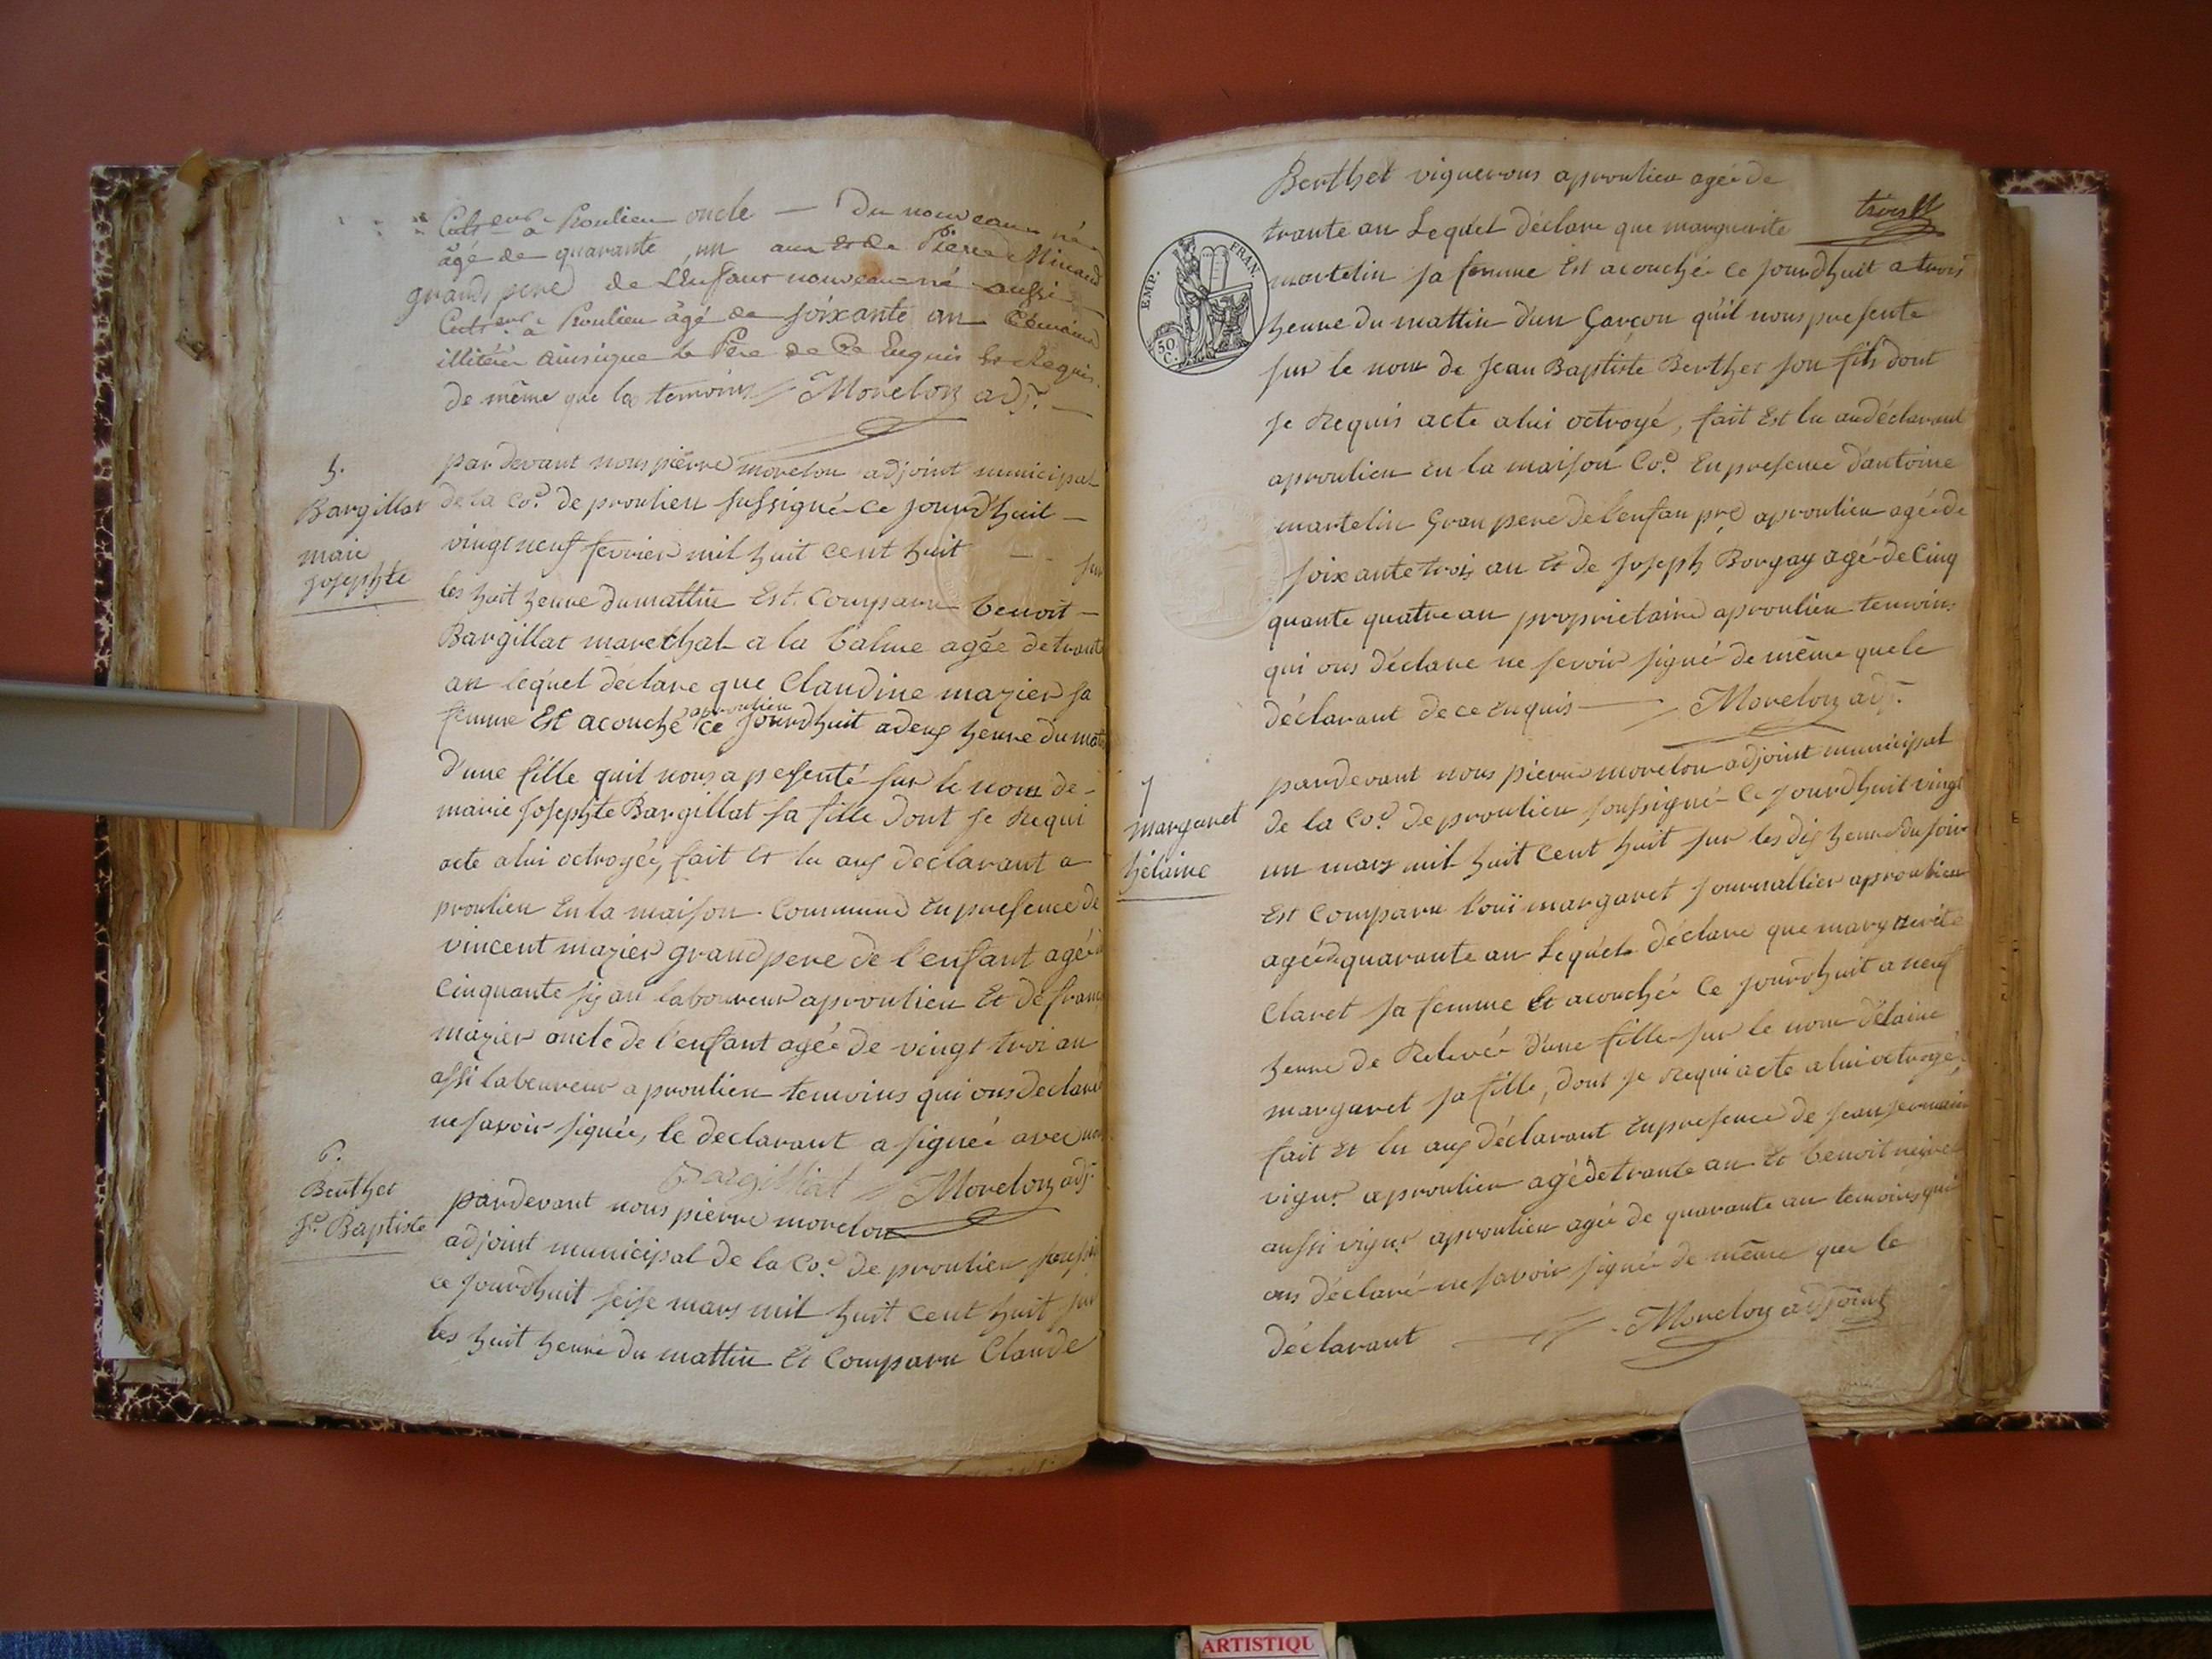 Cult.eur à Proulieu oncle — du nouveau né
âgé de quarante un ans et de Pierre Minand
grand pere de L'enfant nouveau né aussi
Cult.eur à Proulieu âgé de soixante an témoins
illitéré ainsi que le Père de ce Enquis et Requis
de même que les temoins Morelon adj.t
5.
Bargillat
marie
josephte
par devant nous pierre morelon adjoint municipal
de la Co.e de proulieu sussigné ce jourdhuit
vingt neuf fevrier mil huit cent huit — sur
les huit heure du mattin Est Comparu benoit
Bargillat marechal a la balme agée de trante
an lequel déclare que Claudine mazier sa
femme Est acouché aproulieu ce jourdhuit a deux heure du matin
d'une fille quil nous a pesenté sur le nom de
marie josephte Bargillat sa fille dont je Requi
acte a lui octroyée, fait et lu aux declarant a
proulieu En la maison Commune En presence de
vincent mazier grand pere de l'enfant agée
Cinquante six an laboureur aproulieu Et de franc
mazier oncle de l'enfant agée de vingt troi an
assi labeureur a proulieu temoins qui ons declaré
ne savoir signée, le declarant a signeé avec nous
Bargilliat Morelon adj.t
6.
Berthet
J.n Baptiste
pardevant nous pierre morelon
adjoint municipal de la Co.e de proulieu soussi
ce jourdhuit seise mars mil huit cent huit sur
les huit heure du mattin Et Comparu Claude
Berthet vignerons aproulieu agée de
trois
trante an Lequel déclare que marguerite
EMP. FRAN.
50 C.
martelin sa femme Est acouchée ce jourdhuit a trois
heure du mattin d'un Garçon qu'il nous presente
sur le nom de Jean Baptiste Berthet son fils dont
je Requis acte a lui octroyé, fait Est lu au déclarant
aproulieu En la maison Co.e En presence d'antoine
martelin Gran pere de l'enfan pre aproulieu agée de
soixante trois an Et de Joseph Borgay agé de Cinq
quante quatre an proprietaire aproulieu temoins
qui ons déclare ne sevoir signé de même que le
déclarant de ce Enquis — Morelon adj.t
7
margaret
hélaine
pardevant nous pierre morelon adjoint municipal
de la Co.e de proulieu soussigné Ce jourdhuit vingt
un mars mil huit cent huit sur les dix heure du soir
Est Comparu louï margaret journallier aproulieu
agée de quarante an Lequel déclare que marguerite
Claret sa femme Et acouchée Ce jourdhuit a neuf
heure de Relevée d'une fille sur le nom d'élaine
margaret sa fille, dont je Requi acte a lui octroyé
fait Et lu aux déclarant En presence de jean jermain
vign.r aproulieu agé de trante an Et benoit neyret
aussi vign.r aproulieu agée de quarante an temoins qui
ons déclaré ne savoir signée de même que le
déclarant — Morelon adjoint
ARTISTIQU